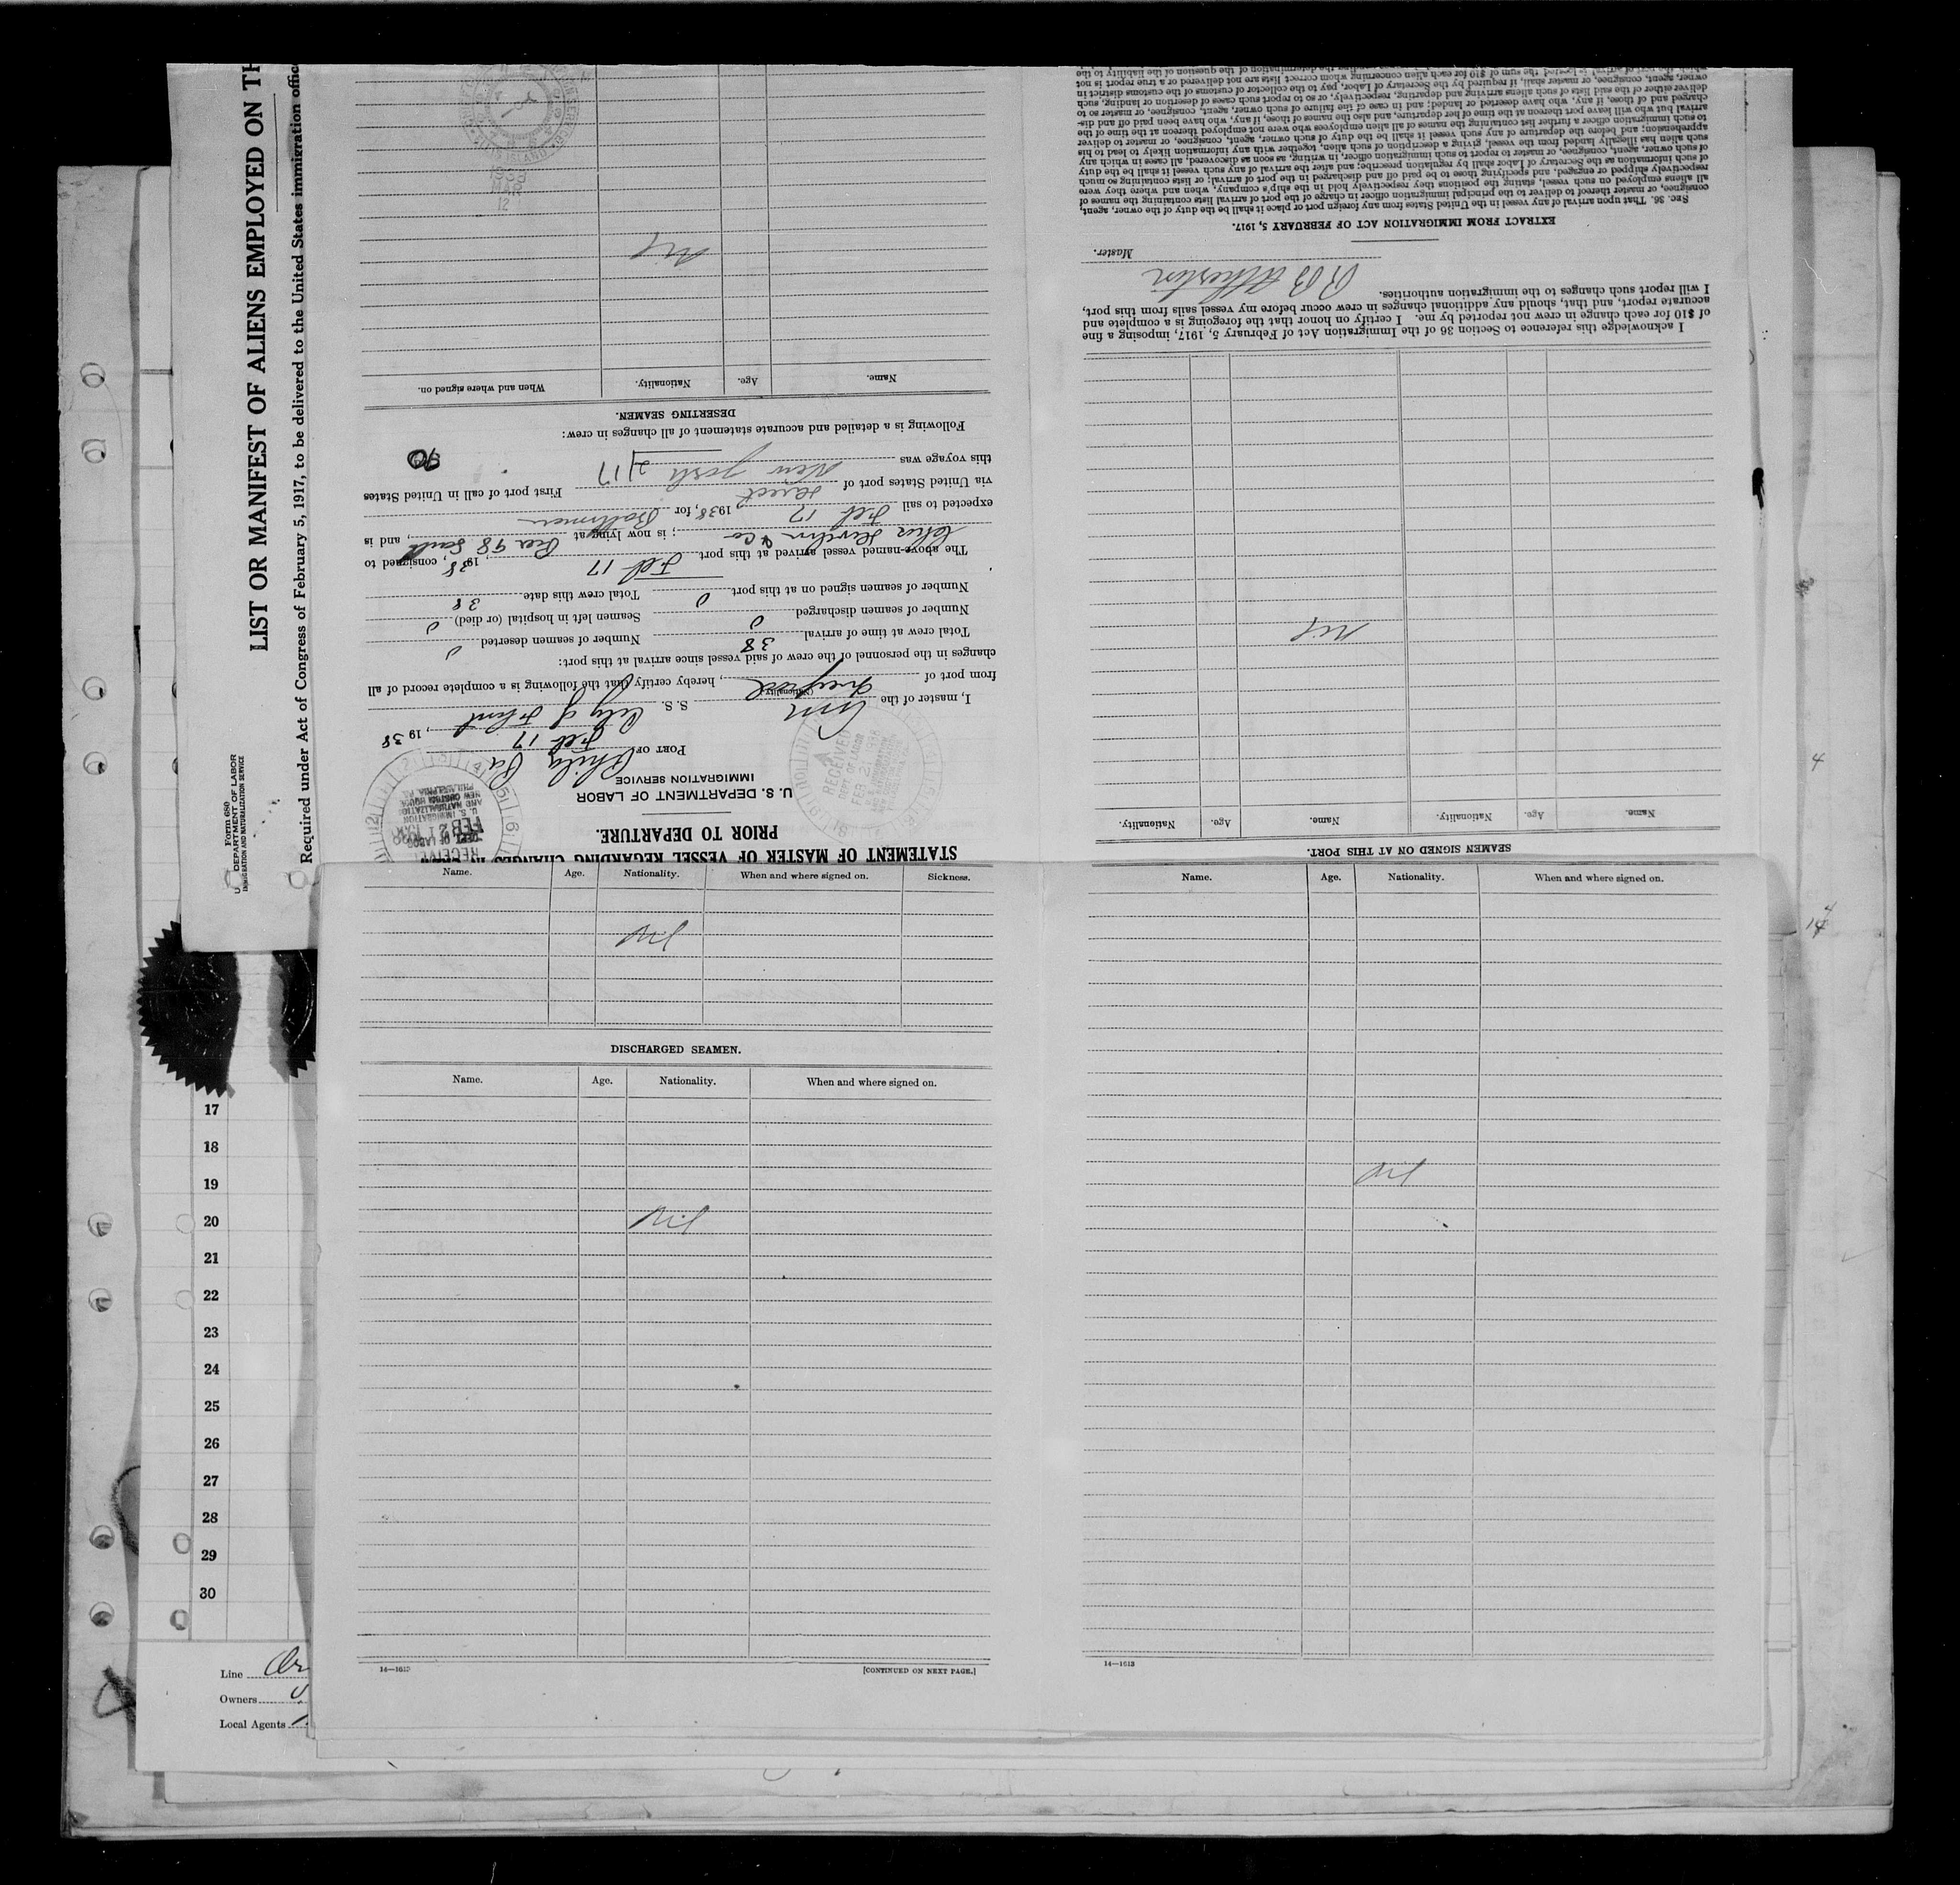 LIST OR MANIFEST OF ALIENS EMPLOYED ON TH
Required under Act of Congress of February 5, 1917, to be delivered to the United States immigration offic
Form 680
U. S. DEPARTMENT OF LABOR
IMMIGRATION AND NATURALIZATION SERVICE
STATEMENT OF MASTER OF VESSEL REGARDING CHANGES IN
PRIOR TO DEPARTURE.
U. S. DEPARTMENT OF LABOR
IMMIGRATION SERVICE
PORT OF Phila Pa
Feb 17, 1938
I, master of the Am S. S. City of Flint
(Nationality)
from port of , hereby certify that the following is a complete record of all
changes in the personnel of the crew of said vessel since arrival at this port:
Total crew at time of arrival 38 Number of seamen deserted 0
Number of seamen discharged 0 Seamen left in hospital (or died) 0
Number of seamen signed on at this port 0 Total crew this date 38
The above-named vessel arrived at this port Feb 17, 1938, consigned to
& Co; is now lying at Pier 98 South, and is
expected to sail Feb 17 1938, for Baltimore
via United States port of direct First port of call in United States
this voyage was New York 2/17
90
Following is a detailed and accurate statement of all changes in crew:
DESERTING SEAMEN.
Name. Age. Nationality. When and where signed on.
Nil
1938
MAR
12
RECEIVED
DEPT OF LABOR
FEB 21 1938
U. S. IMMIGRATION
AND NATURALIZATION
NEW CUSTOM HOUSE
PHILADELPHIA, PA.
RECEIVED
DEPT. OF LABOR
FEB 21 1938
SEAMEN SIGNED ON AT THIS PORT.
Name. Age. Nationality. Name. Age. Nationality.
Nil
I acknowledge this reference to Section 36 of the Immigration Act of February 5, 1917, imposing a fine
of $10 for each change in crew not reported by me. I certify on honor that the foregoing is a complete and
accurate report, and that, should any additional changes in crew occur before my vessel sails from this port,
I will report such changes to the immigration authorities.
Master.
EXTRACT FROM IMMIGRATION ACT OF FEBRUARY 5, 1917.
SEC. 36. That upon arrival of any vessel in the United States from any foreign port or place it shall be the duty of the owner, agent,
consignee, or master thereof to deliver to the principal immigration officer in charge of the port of arrival lists containing the names of
all aliens employed on such vessel, stating the positions they respectively hold in the ship's company, when and where they were
respectively shipped or engaged, and specifying those to be paid off and discharged in the port of arrival; or lists containing so much
of such information as the Secretary of Labor shall by regulation prescribe; and after the arrival of any such vessel it shall be the duty
of such owner, agent, consignee, or master to report to such immigration officer, in writing, as soon as discovered, all cases in which any
such alien has illegally landed from the vessel, giving a description of such alien, together with any information likely to lead to his
apprehension; and before the departure of any such vessel it shall be the duty of such owner, agent, consignee, or master to deliver
to such immigration officer a further list containing the names of all alien employees who were not employed thereon at the time of the
arrival but who will leave port thereon at the time of her departure, and also the names of those, if any, who have been paid off and dis-
charged and of those, if any, who have deserted or landed; and in case of the failure of such owner, agent, consignee, or master so to
deliver either of the said lists of such aliens arriving and departing, respectively, or so to report such cases of desertion or landing, such
owner, agent, consignee, or master shall, if required by the Secretary of Labor, pay to the collector of customs of the customs district in
which the port of arrival is located the sum of $10 for each alien concerning whom correct lists are not delivered or a true report is not
Name. Age. Nationality. When and where signed on. Sickness.
Nil
DISCHARGED SEAMEN.
Name. Age. Nationality. When and where signed on.
Nil
14—1613
[CONTINUED ON NEXT PAGE.]
Name. Age. Nationality. When and where signed on.
Nil
14—1613
17
18
19
20
21
22
23
24
25
26
27
28
29
30
Line
Owners
Local Agents
4
14